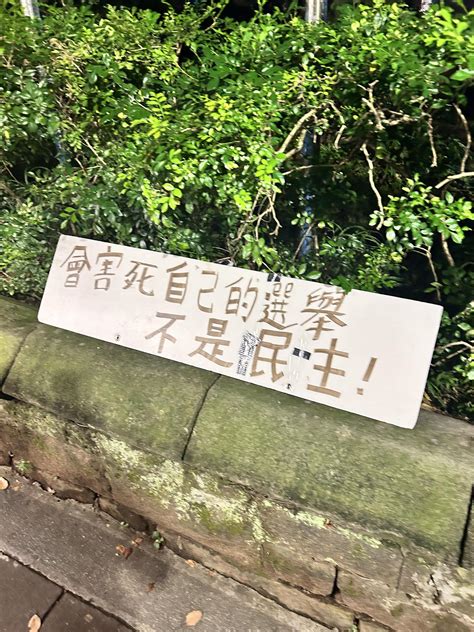 會害死自己的選舉
不是民主!